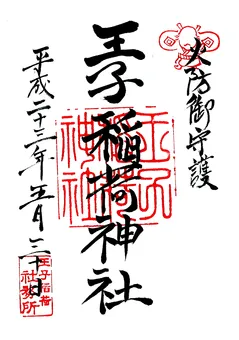 火防御守護
王子稲荷神社
王子稲荷神社
平成二十三年五月三十日
王子稲荷
社務所